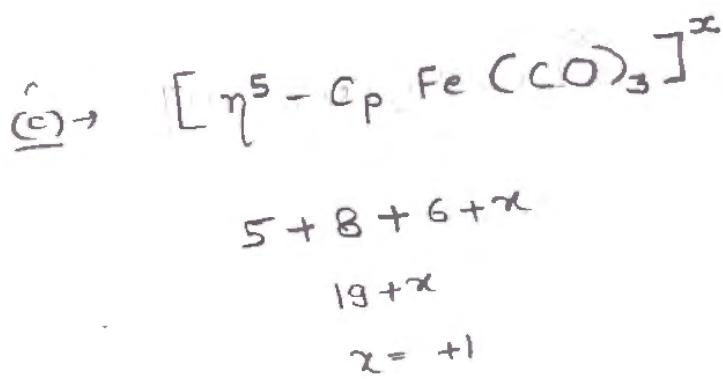 (c) → [η⁵ - Cp Fe (CO)₃]ˣ
5 + 8 + 6 + x
19 + x
x = +1